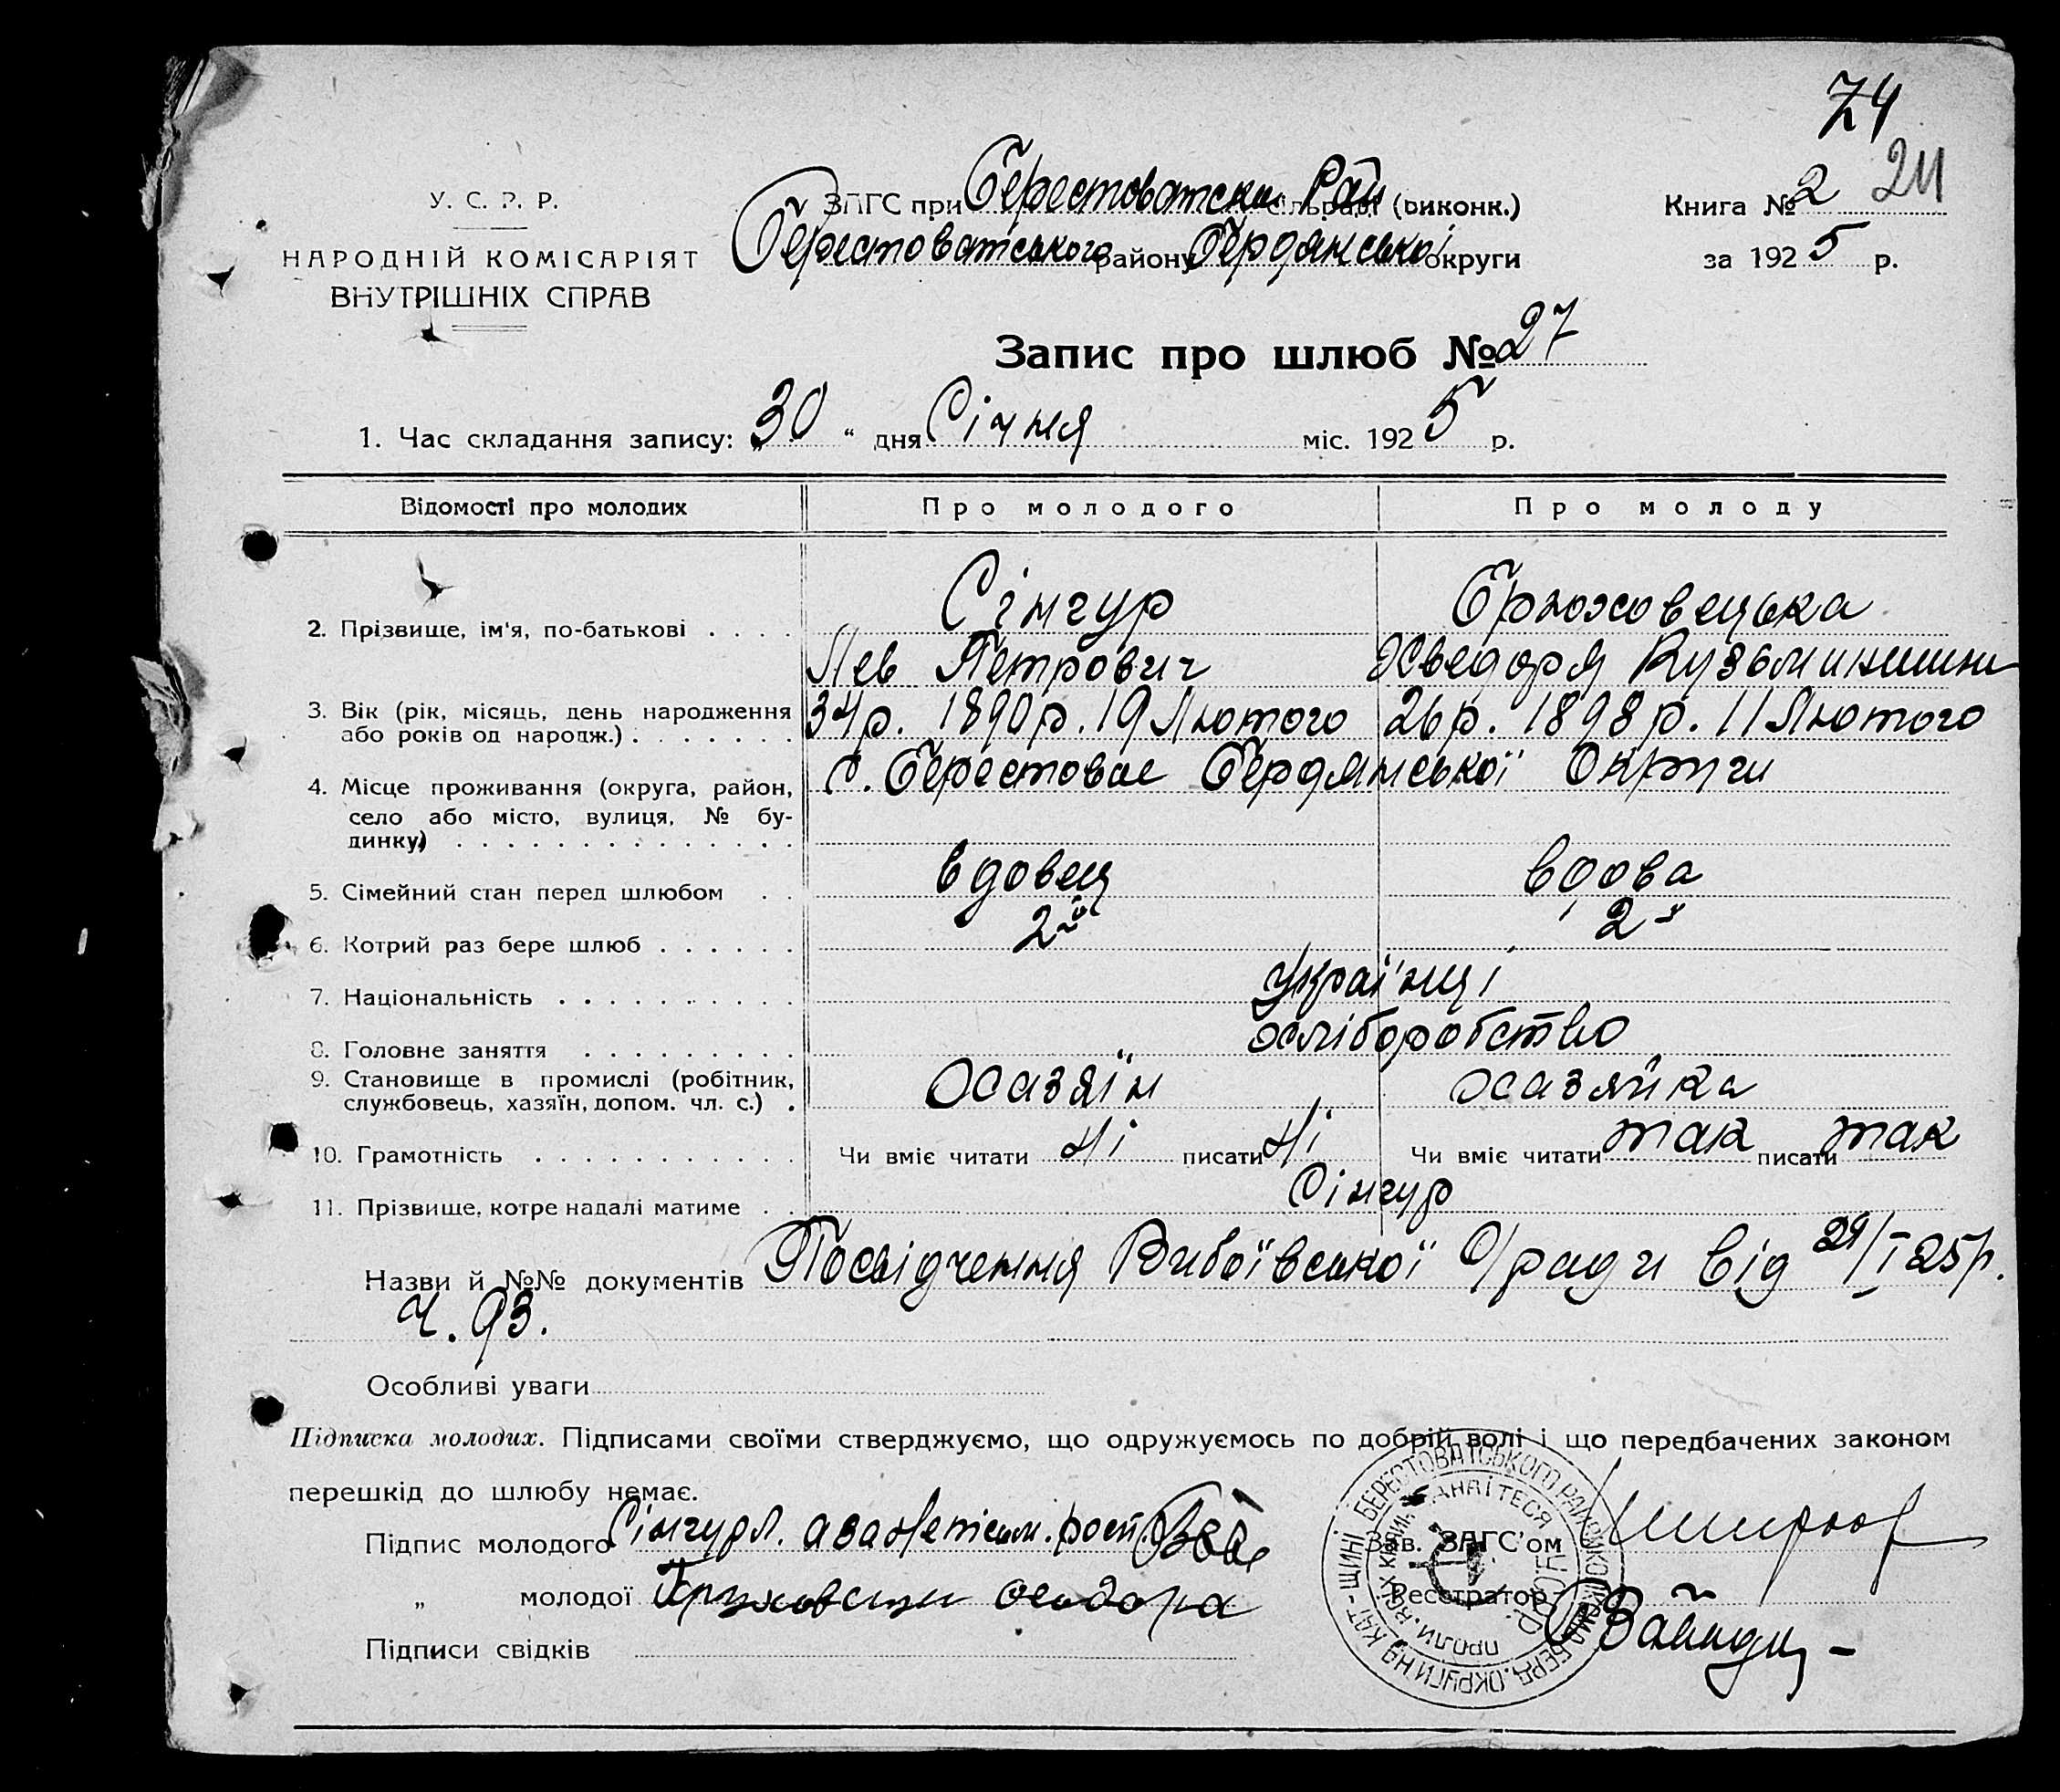 74
У. С. Р. Р.
НАРОДНІЙ КОМІСАРІЯТ
ВНУТРІШНІХ СПРАВ
ЗАГС при Берестоватском Рай (виконк.)
Берестоватського району Бердянської округи
Книга № 2 24
за 1925 р.
Запис про шлюб № 27
1. Час складання запису: „30“ дня Січня міс. 1925 р.
Відомості про молодих Про молодого Про молоду
2. Прізвище, ім'я, по-батькові Сінгур Брюховецька
Лев Петрович Хведоря Кузьминишна
3. Вік (рік, місяць, день народження 34р. 1890р. 19 Лютого 26р. 1898р. 11 Лютого
або років од народж.)
4. Місце проживання (округа, район, с. Берестовое Бердянської Округи
село або місто, вулиця, № бу-
динку)
5. Сімейний стан перед шлюбом вдовец вдова
6. Котрий раз бере шлюб 2й 2й
7. Національність Українці
8. Головне заняття хліборобство
9. Становище в промислі (робітник, Хазяїн хазяйка
службовець, хазяїн, допом. чл. с.)
10. Грамотність Чи вміє читати Ні писати Ні Чи вміє читати так писати так
11. Прізвище, котре надалі матиме Сінгур
Назви й №№ документів Посвідчення Вибоївської С/ради від 29/I 25р.
Ч. 93.
Особливі уваги
Підписка молодих. Підписами своїми стверджуємо, що одружуємось по добрій волі і що передбачених законом
перешкід до шлюбу немає.
Підпис молодого Сінгур Л. а за
Зав. ЗАГС'ом
„ молодої
Реєстратор
Підписи свідків
БЕРЕСТОВАТСЬКОГО РАЙВИКОНКОМА БЕРД. ОКРУГИ НА КАТ-ЩИНІ
ПРОЛИ. ВСІХ КРАЇН ЄДНАЙТЕСЯ